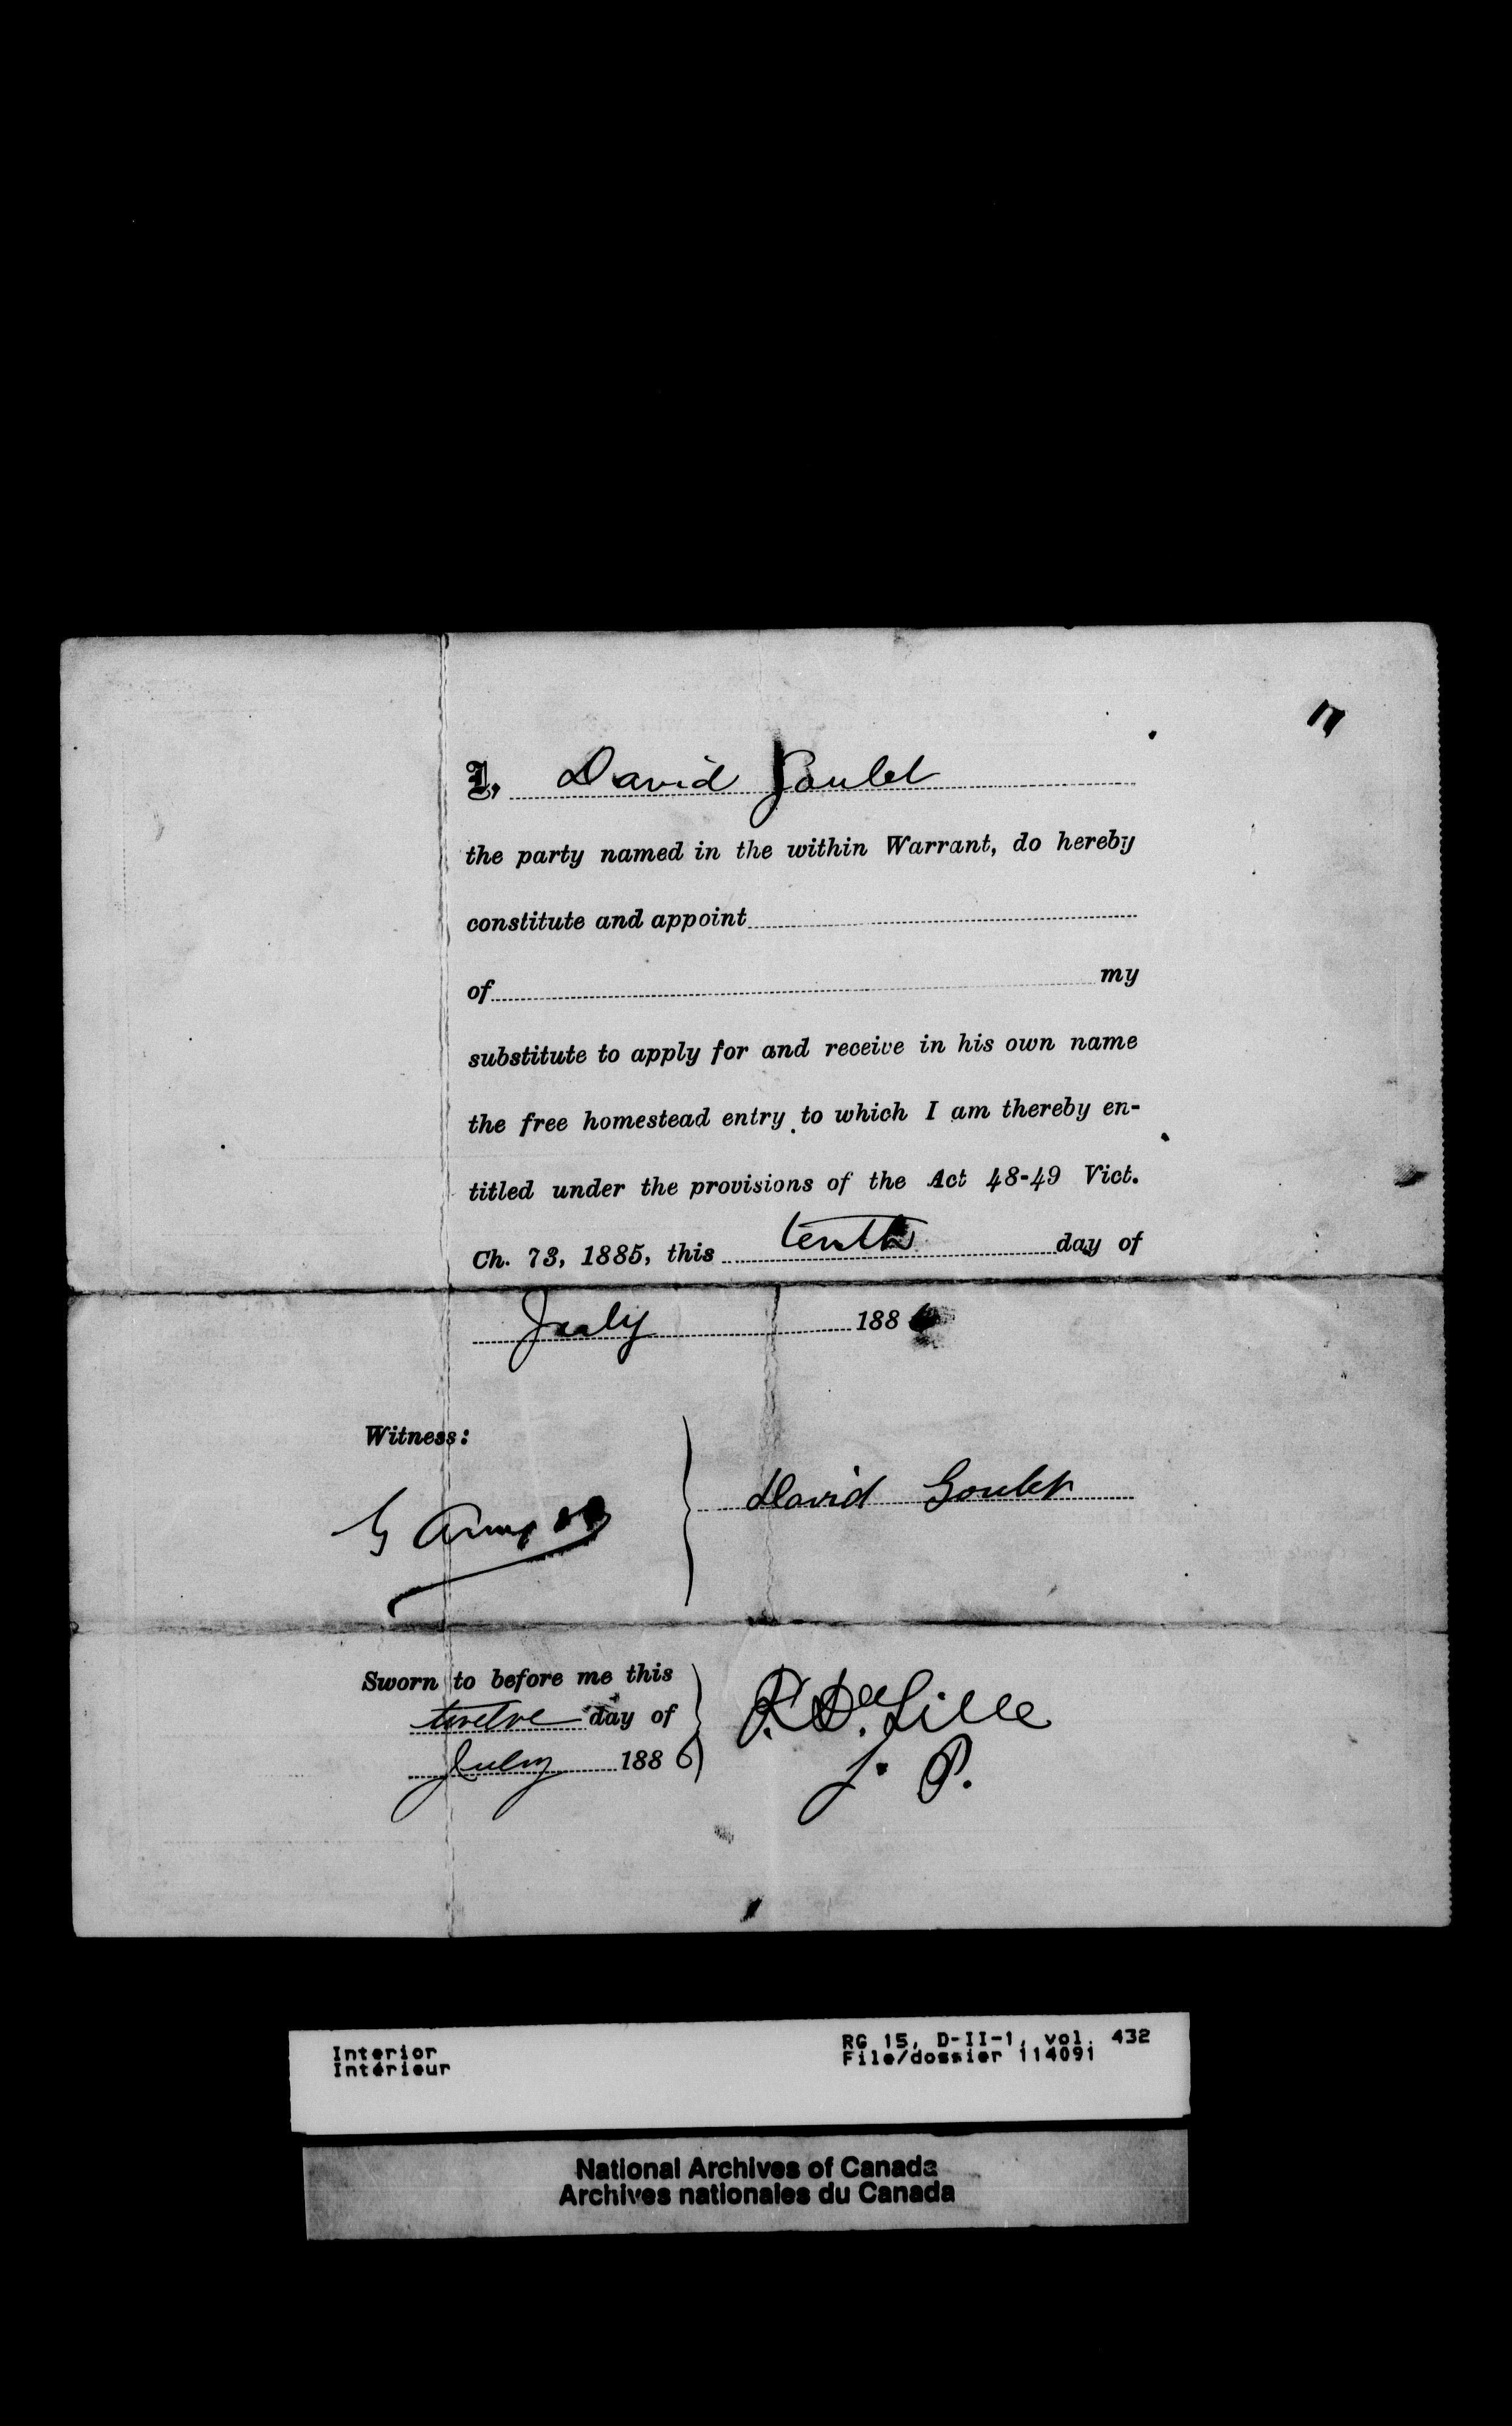 17
I, David Goulet
the party named in the within Warrant, do hereby
constitute and appoint
of my
substitute to apply for and receive in his own name
the free homestead entry to which I am thereby en-
titled under the provisions of the Act 48-49 Vict.
Ch. 73, 1885, this tenth day of
July 1886
Witness:
David Goulet
Sworn to before me this
twelve day of
July 1886
P. DeLille
J. P.
Interior RG 15, D-II-1, vol. 432
Intérieur File/dossier 114091
National Archives of Canada
Archives nationales du Canada